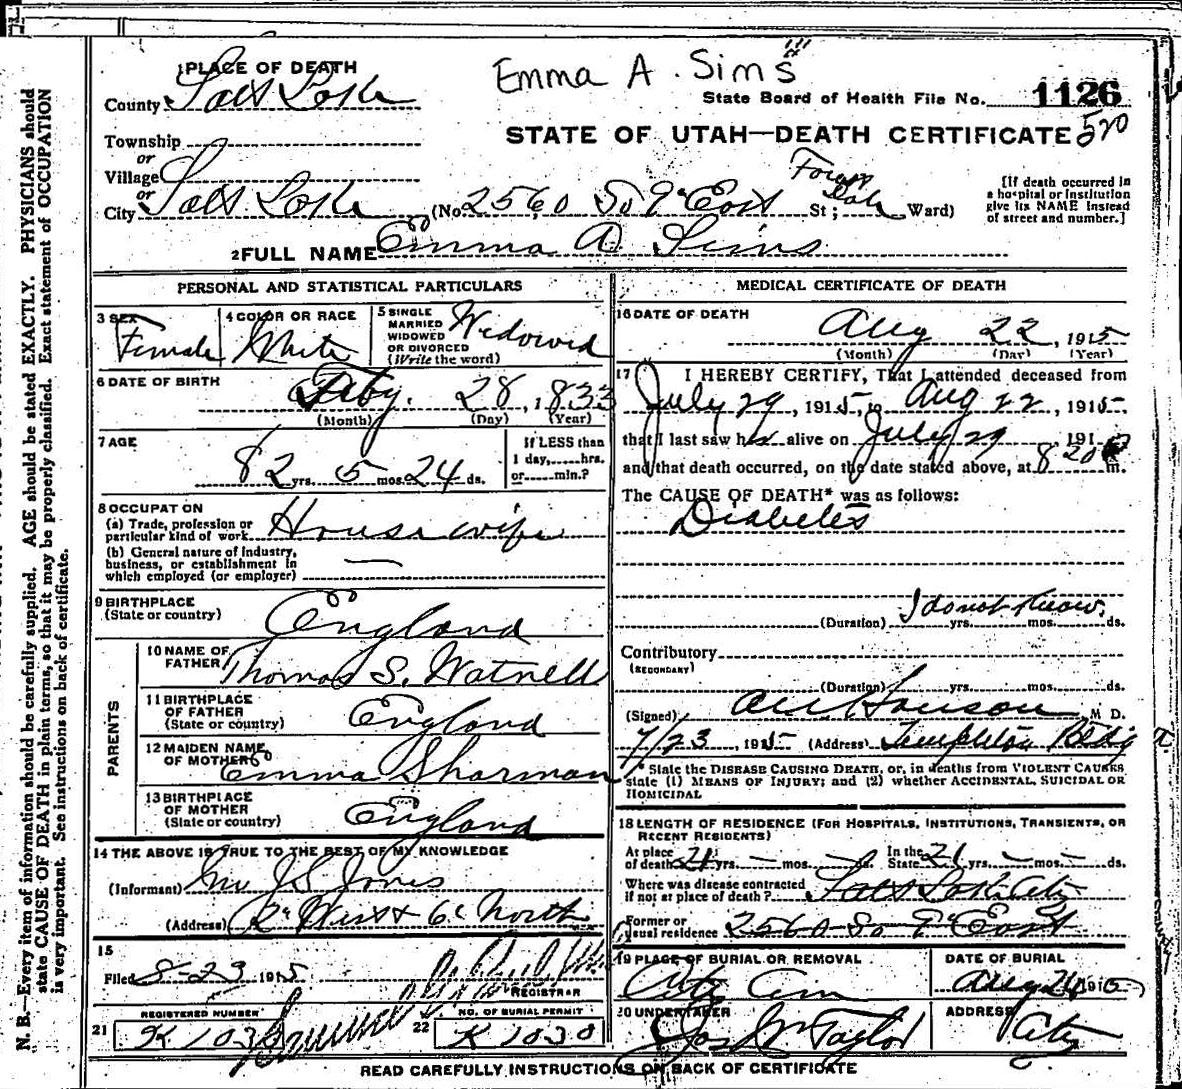 Emma A. Sims
1 PLACE OF DEATH
County Salt Lake
State Board of Health File No. 1126
Township
or
Village
or
City Salt Lake
STATE OF UTAH—DEATH CERTIFICATE 520
(No 2560 So 9th East St; Forest Dale Ward)
[If death occurred in
a hospital or institution
give its NAME instead
of street and number.]
2 FULL NAME Emma A. Sims
PERSONAL AND STATISTICAL PARTICULARS
3 SEX
Female
4 COLOR OR RACE
White
5 SINGLE
MARRIED
WIDOWED
OR DIVORCED
(Write the word)
Widowed
6 DATE OF BIRTH
Feby. 28, 1833
(Month) (Day) (Year)
7 AGE
82 yrs. 5 mos. 24 ds.
If LESS than
1 day,......hrs.
or......min.?
8 OCCUPATION
(a) Trade, profession or
particular kind of work Housewife
(b) General nature of industry,
business, or establishment in
which employed (or employer)
9 BIRTHPLACE
(State or country) England
PARENTS
10 NAME OF
FATHER Thomas S. Watnell
11 BIRTHPLACE
OF FATHER
(State or country) England
12 MAIDEN NAME
OF MOTHER Emma Sharman
13 BIRTHPLACE
OF MOTHER
(State or country) England
14 THE ABOVE IS TRUE TO THE BEST OF MY KNOWLEDGE
(Informant) J S Jones
(Address) 2d West & 6th North
15
Filed 8-23 1915
REGISTRAR
REGISTERED NUMBER
21 K 1030
NO. OF BURIAL PERMIT
22 K 1030
MEDICAL CERTIFICATE OF DEATH
16 DATE OF DEATH
Aug 22, 1915
(Month) (Day) (Year)
17 I HEREBY CERTIFY, That I attended deceased from
July 29, 1915, to Aug 22, 1915,
that I last saw her alive on July 29 191
and that death occurred, on the date stated above, at 8 20 m.
The CAUSE OF DEATH* was as follows:
Diabetes
I do not know.
(Duration) yrs. mos. ds.
Contributory
(SECONDARY)
(Duration) yrs. mos. ds.
(Signed) Houson M D.
7/23, 1915 (Address) Templeton Bldg
* State the DISEASE CAUSING DEATH, or, in deaths from VIOLENT CAUSES
state (1) MEANS OF INJURY; and (2) whether ACCIDENTAL, SUICIDAL OR
HOMICIDAL
18 LENGTH OF RESIDENCE (FOR HOSPITALS, INSTITUTIONS, TRANSIENTS, OR
RECENT RESIDENTS)
At place
of death 21 yrs. – mos. – ds. In the
State 21 yrs. – mos. – ds.
Where was disease contracted
if not at place of death? Salt Lake City
Former or
usual residence 2560 So 9th East
19 PLACE OF BURIAL OR REMOVAL
City Cem
DATE OF BURIAL
Aug 26 1915
20 UNDERTAKER
Jos Wm Taylor
ADDRESS
City
READ CAREFULLY INSTRUCTIONS ON BACK OF CERTIFICATE
N. B.—Every item of information should be carefully supplied. AGE should be stated EXACTLY. PHYSICIANS should
state CAUSE OF DEATH in plain terms, so that it may be properly classified. Exact statement of OCCUPATION
is very important. See instructions on back of certificate.